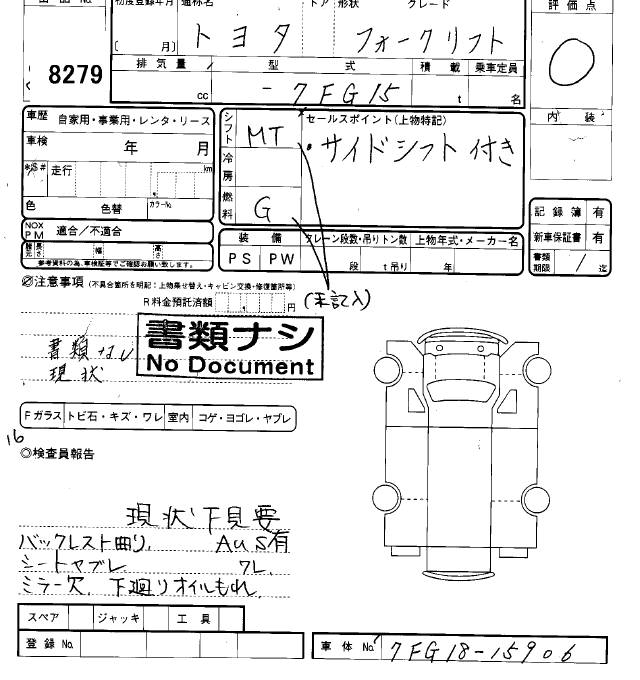 初度登録年月 通称名 ドア 形状 グレード 評価点
8279
〔 月〕 トヨタ フォークリフト 0
排気量 型式 積載 乗車定員
cc -7FG15 t 名
内装
車歴 自家用・事業用・レンタ・リース
車検 年 月
走行 km
色 色替 カラーNo.
シフト MT
冷房
燃料 G
セールスポイント(上物特記)
・サイドシフト付き
記録簿 有
新車保証書 有
書類期限 / 迄
NOX PM 適合/不適合
長さ 幅 高さ
参考資料の為、車検証等でご確認お願い致します。
装備 クレーン段数・吊りトン数 上物年式・メーカー名
PS PW 段 t吊り 年
◎注意事項 (不具合箇所を明記:上物乗せ替え・キャビン交換・修復箇所等)
R料金預託済額 円 (未記入)
書類ナシ
No Document
書類ナシ
現状
Fガラス トビ石・キズ・ワレ 室内 コゲ・ヨゴレ・ヤブレ
16
◎検査員報告
現状下見要
バックレスト曲り. AuS有
シートヤブレ ワレ.
ミラー欠. 下廻りオイルもれ.
スペア ジャッキ 工具
登録No.
車体No. 7FG18-15906